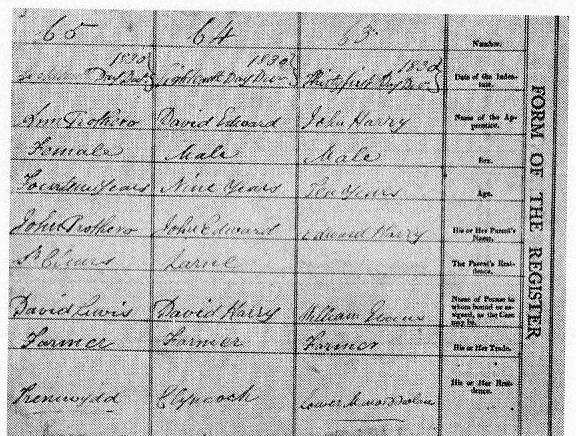 65 64 63 Number.
1830 1830 1830
Day Decr Eighteenth Day Decr Thirty first Day Decr Date of the Indenture.
Ann Prothero David Edward John Harry Name of the Apprentice.
Female Male Male Sex.
Fourteen Years Nine Years Ten Years Age.
John Prothero John Edward Edward Harry His or Her Parent's Name.
St Clears Larne The Parent's Residence.
David Lewis David Harry William Evans Name of Person to whom bound or assigned, as the Case may be.
Farmer Farmer Farmer His or Her Trade.
Trenwydd Clyncoch Lower His or Her Residence.
FORM OF THE REGISTER